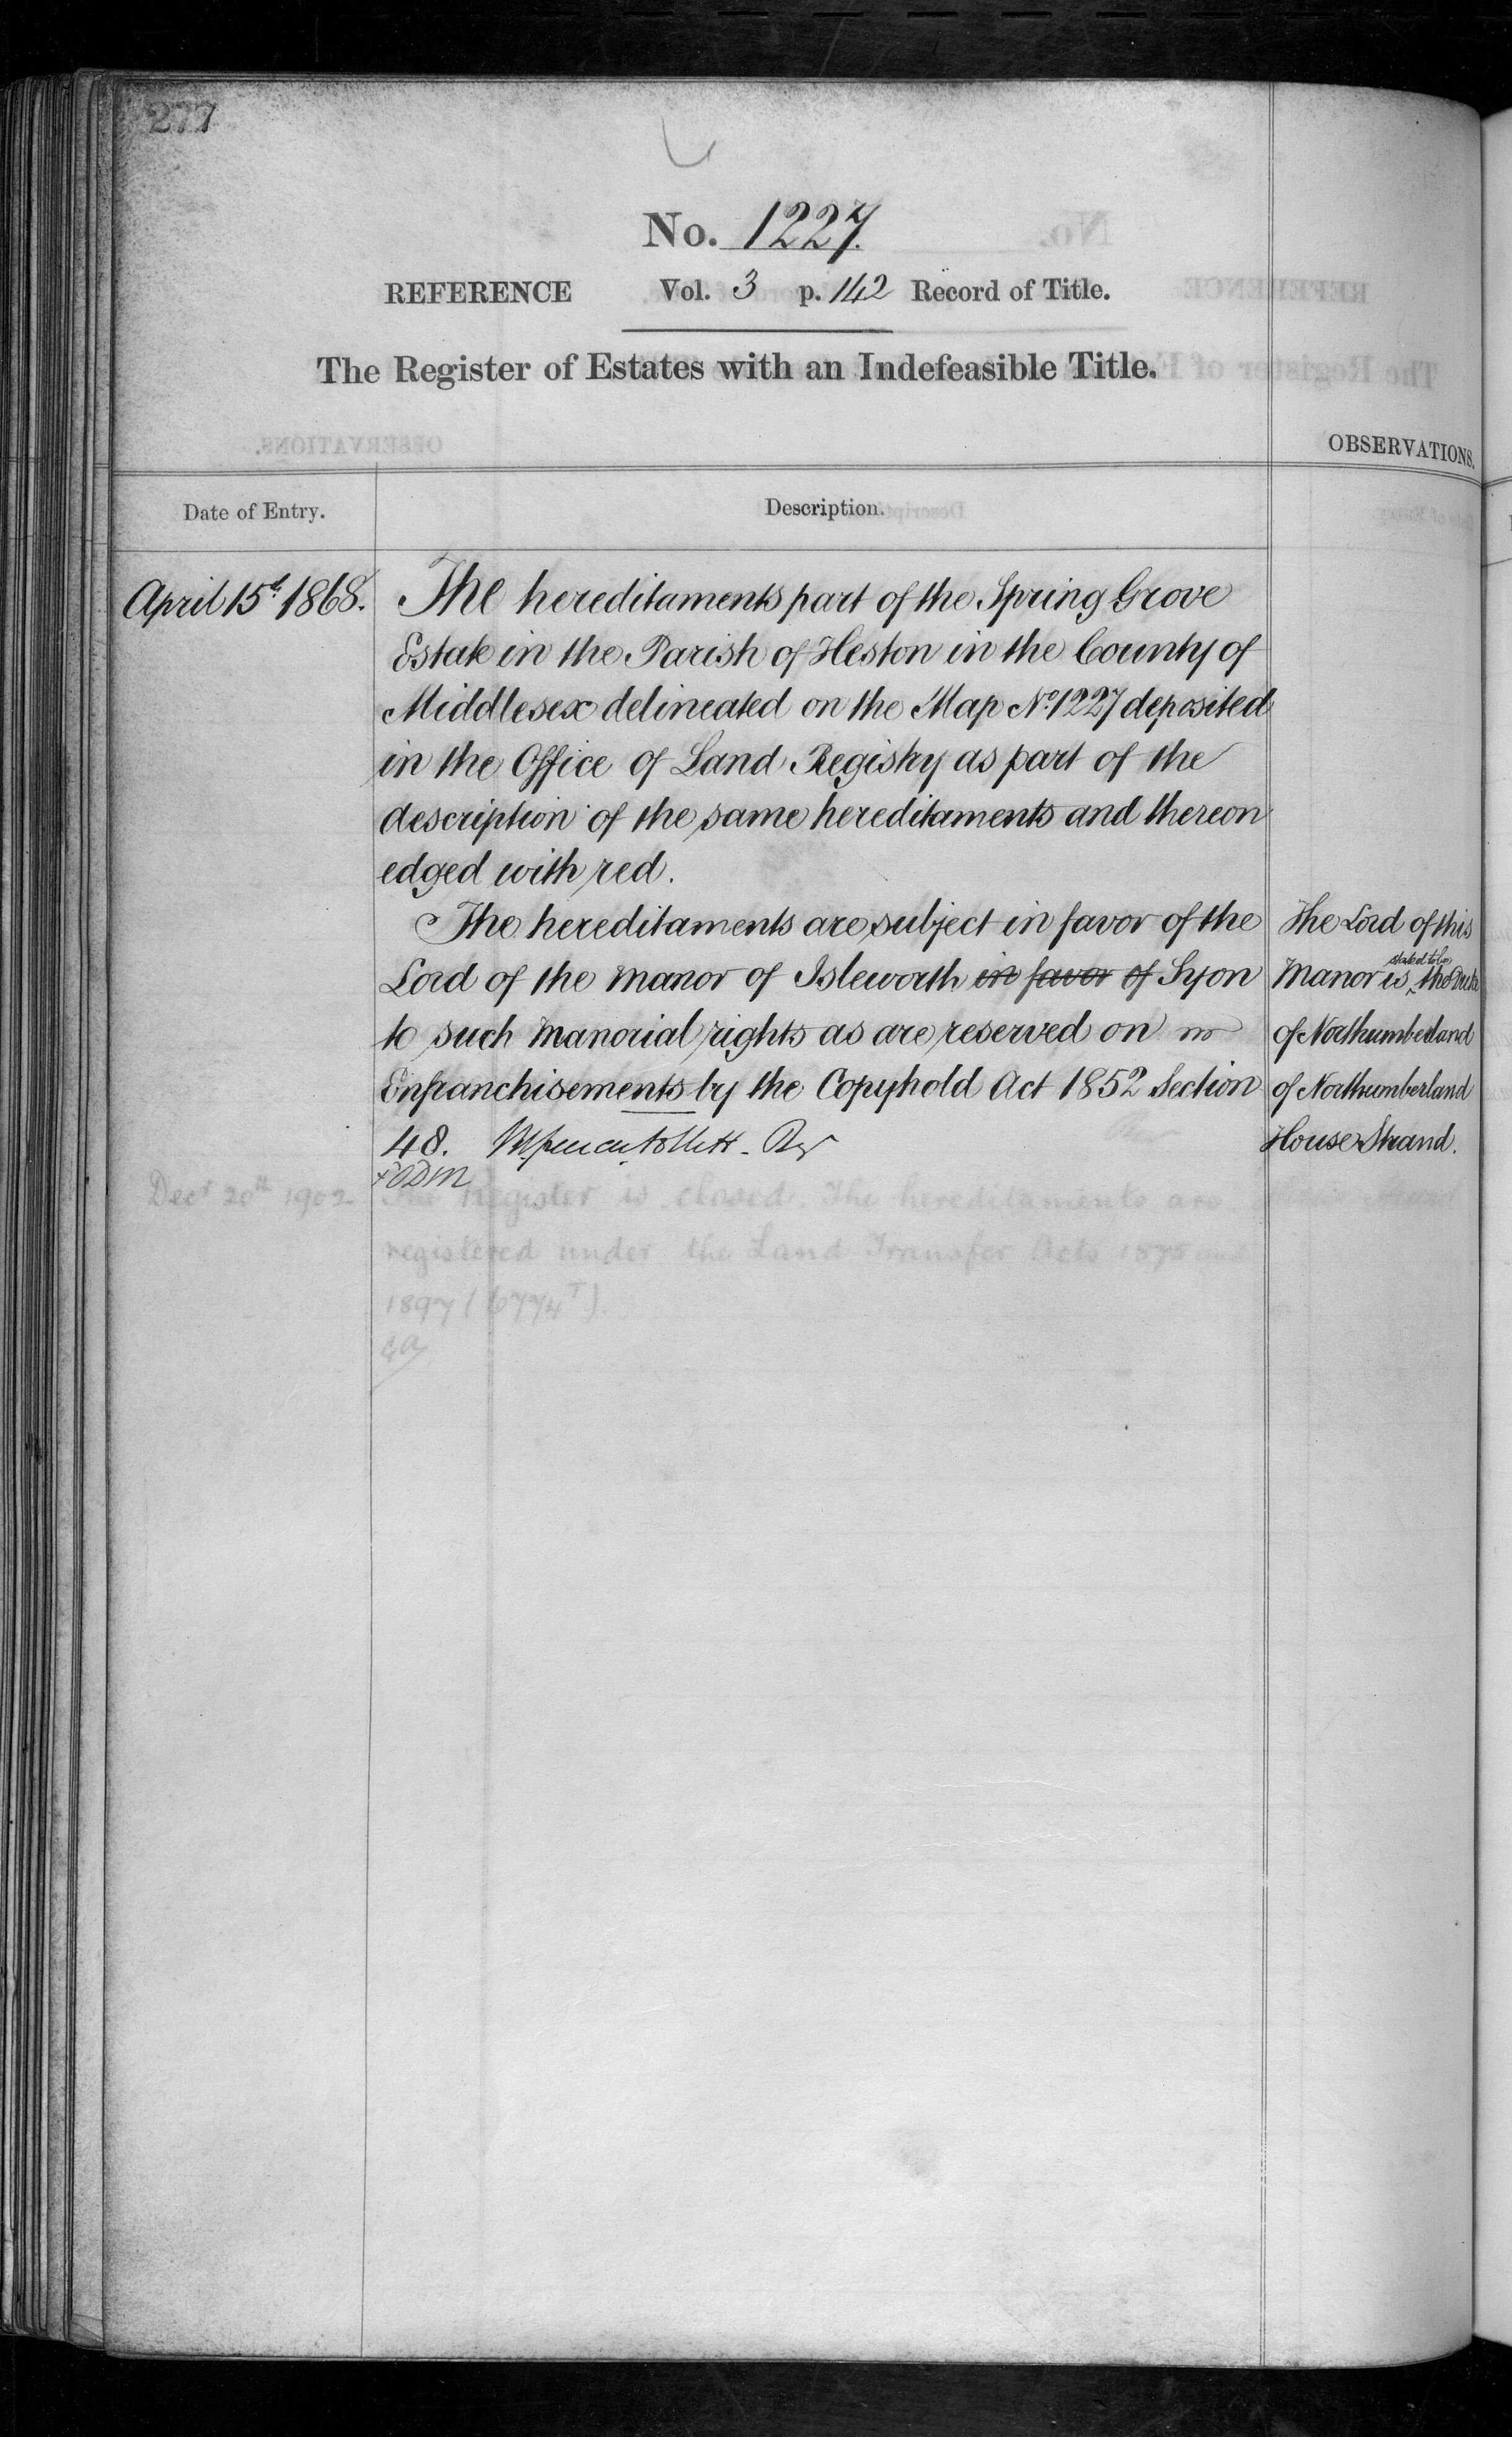 277
No. 1227.
REFERENCE Vol. 3 p. 142 Record of Title.
The Register of Estates with an Indefeasible Title.
OBSERVATIONS.
Date of Entry.
Description.
April 15th 1868.
The hereditaments part of the Spring Grove
Estate in the Parish of Heston in the County of
Middlesex delineated on the Map No. 1227 deposited
in the Office of Land Registry as part of the
description of the same hereditaments and thereon
edged with red.
The hereditaments are subject in favor of the
Lord of the Manor of Isleworth in favor of Syon
to such Manorial rights as are reserved on
Enfranchisements by the Copyhold Act 1852 Section
48.
The Lord of this
Manor is stated to be the Duke
of Northumberland
of Northumberland
House Strand.
Decr 20th 1902
The Register is closed. The hereditaments are
registered under the Land Transfer Acts 1875 and
1897 (6774T).